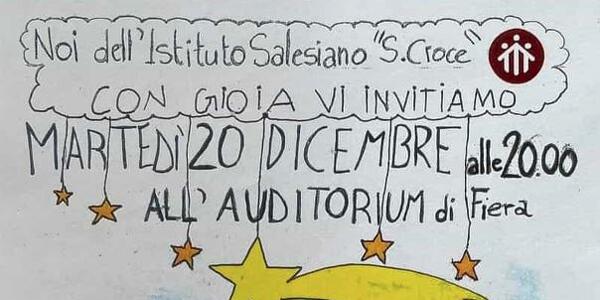 Noi dell'Istituto Salesiano "S. Croce"
CON GIOIA VI INVITIAMO
MARTEDÌ 20 DICEMBRE alle 20.00
ALL'AUDITORIUM di Fiera